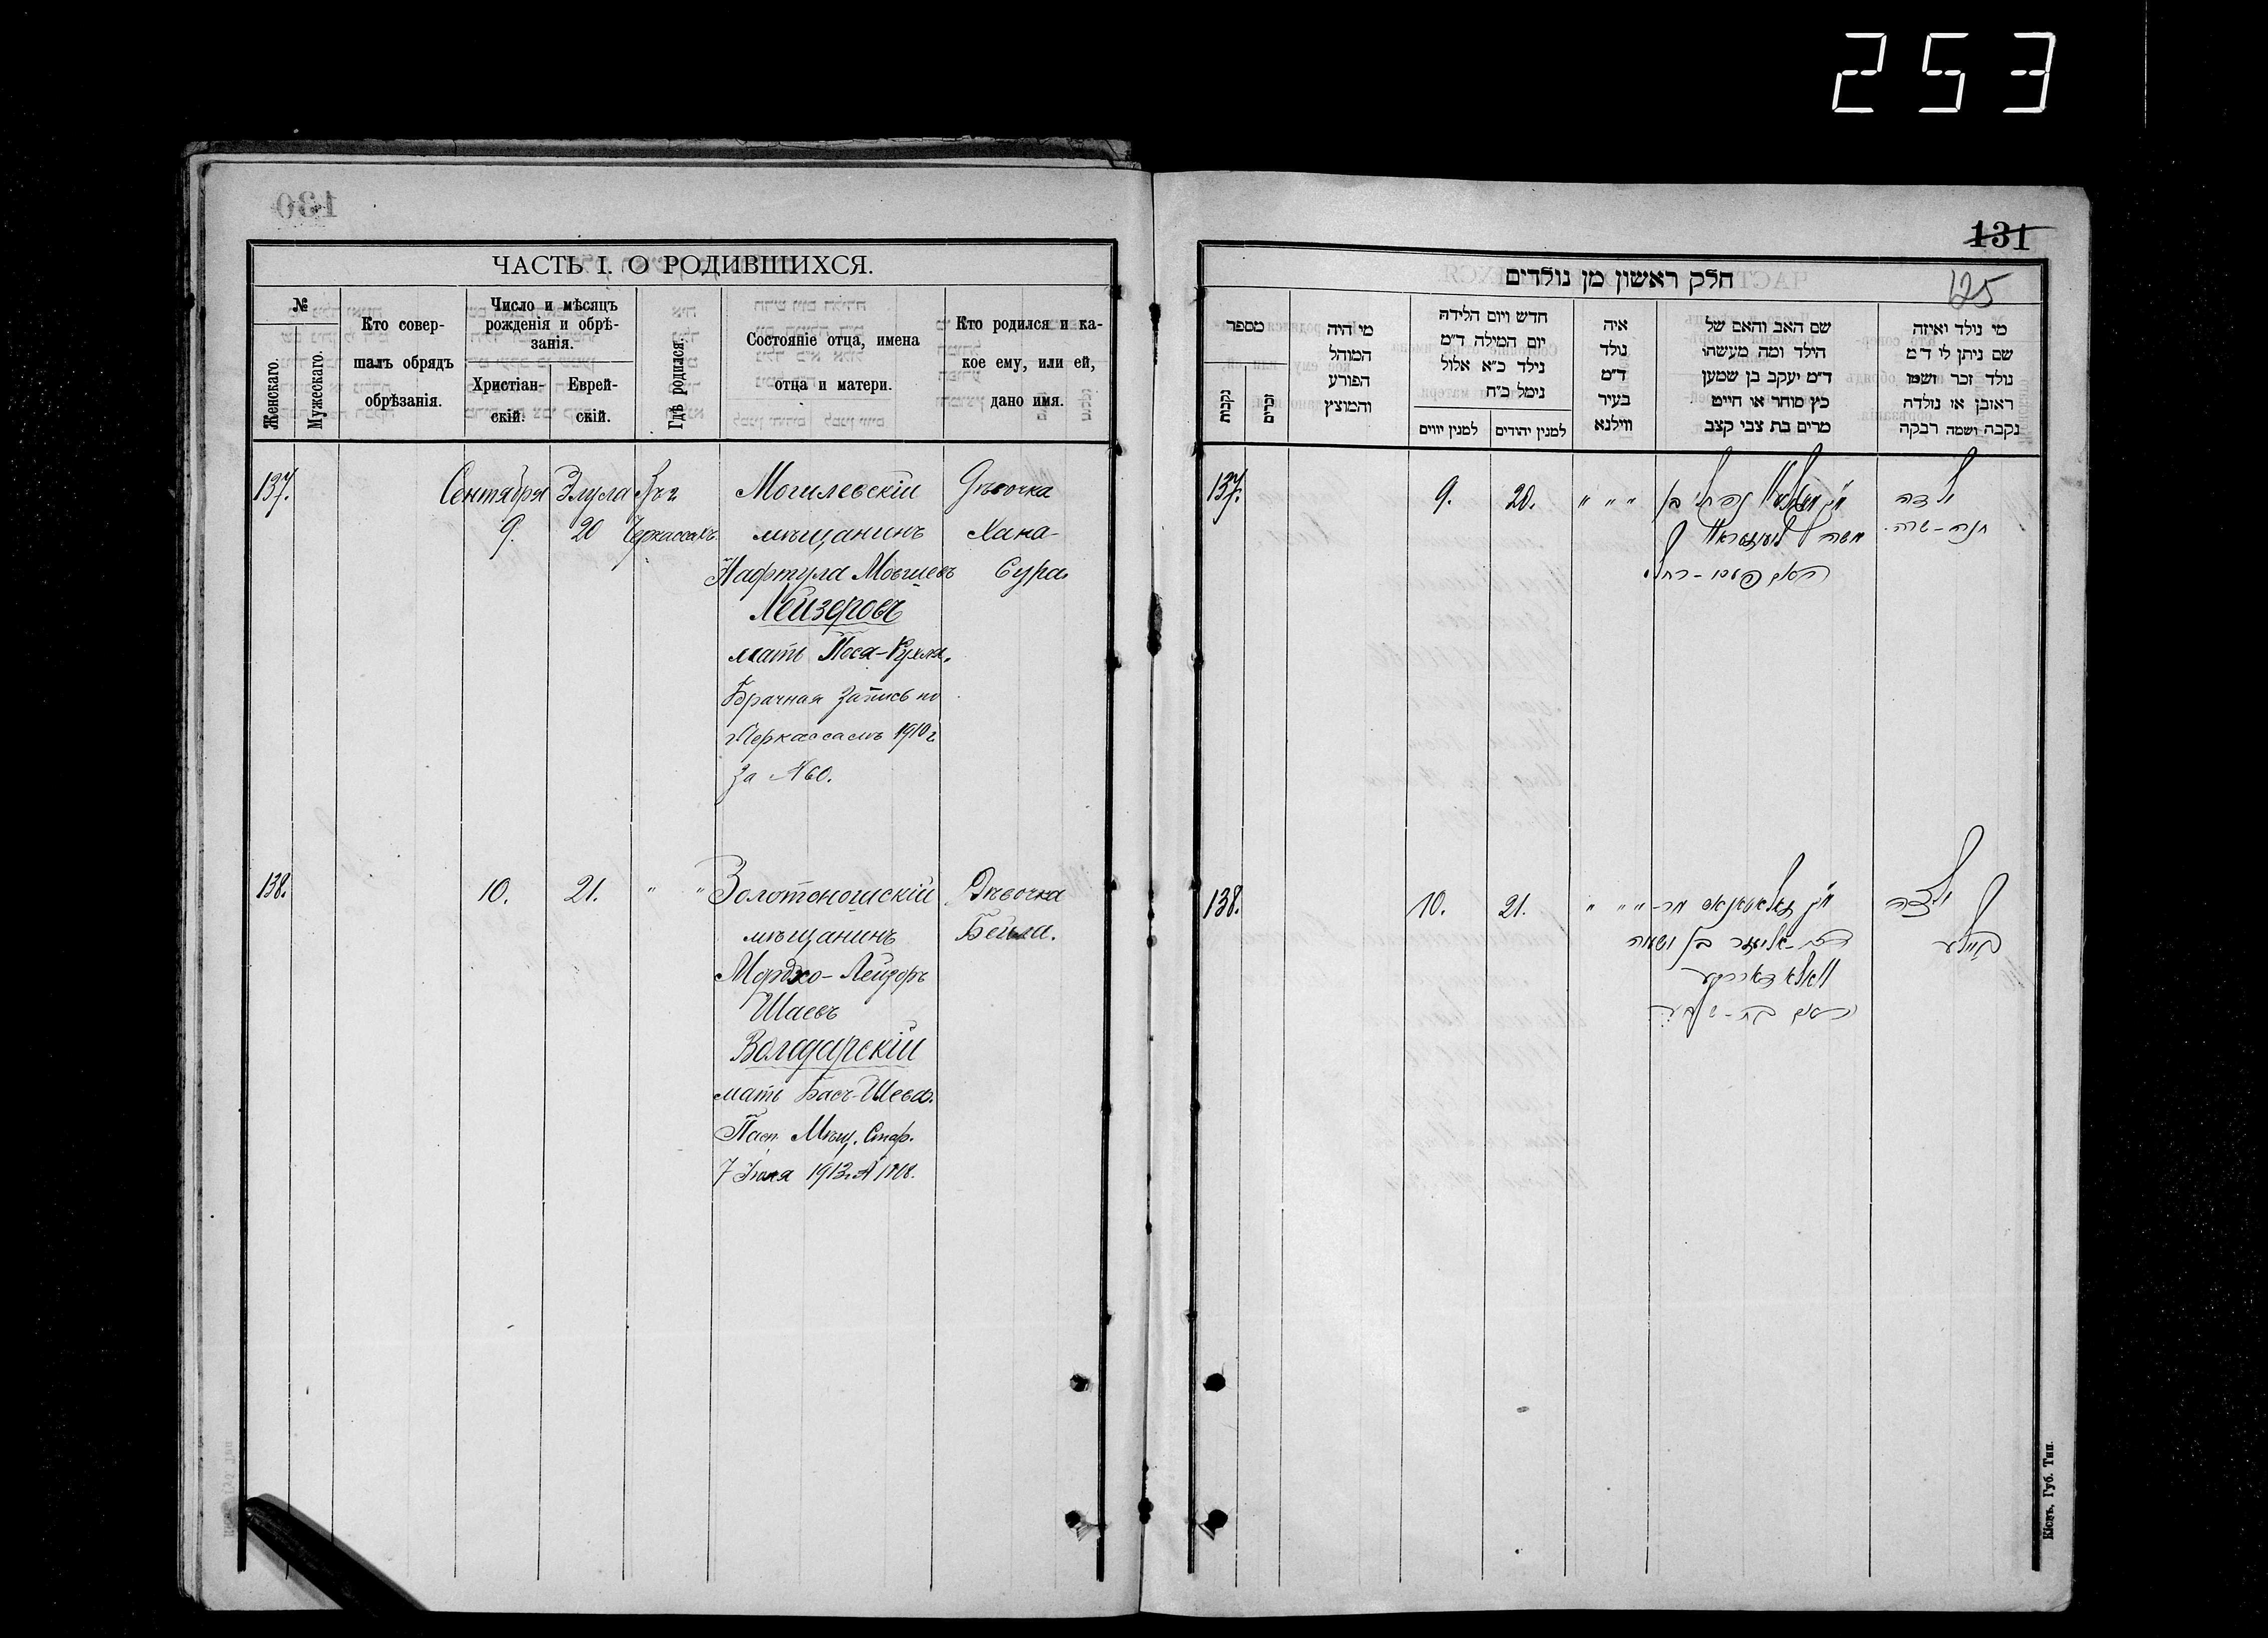 253
130
ЧАСТЬ I. О РОДИВШИХСЯ.
№
Женскаго.
Мужескаго.
Кто совер-
шалъ обрядъ
обрѣзанія.
Число и мѣсяцъ
рожденія и обрѣ-
занія.
Христіан-
скій.
Еврей-
скій.
Гдѣ родился.
Состояніе отца, имена
отца и матери.
Кто родился и ка-
кое ему, или ей,
дано имя.
137. Сентября Элула Въ г. Могилевскій Дѣвочка
9. 20 Черкассахъ мѣщанинъ Хана-
Нафтула Мовшевъ Сура
Лейзеровъ
мать Песя-Рухля.
Брачная запись по
Черкассамъ 1910 г
за № 60.
138. 10. 21. " " Золотоношскій Дѣвочка
мѣщанинъ Бейла.
Мордко-Лейзоръ
Шаевъ
Володарскій
мать Бася-Шева.
Пасп. Мѣщ. Стар.
7 Іюля 1913 г.
131
125
חלק ראשון מן נולדים
מספר
נקבות
זכרים
מי היה
המוהל
הפורע
והמוצץ
חדש ויום הלידה
יום המילה ד״מ
נילד כ״א אלול
נימל כ״ח
למנין יווים
למנין יהודים
איה
נולד
ד״מ
בעיר
ווילנא
שם האב והאם של
הילד ומה מעשהו
ד״מ יעקב בן שמען
כץ סוחר או חייט
מרים בת צבי קצב
מי נולד ואיזה
שם ניתן לי ד״מ
נולד זכר ושמו
ראובן או נולדה
נקבה ושמה רבקה
137. 9. 20. " " " נפתלי בן ילדה
משה חנה-שרה.
138. 10. 21. " " " ילדה
אליעזר בן ישעיה ביילע
וואלאדארסקי
בת-שבע
Кіевъ, Губ. Тип.